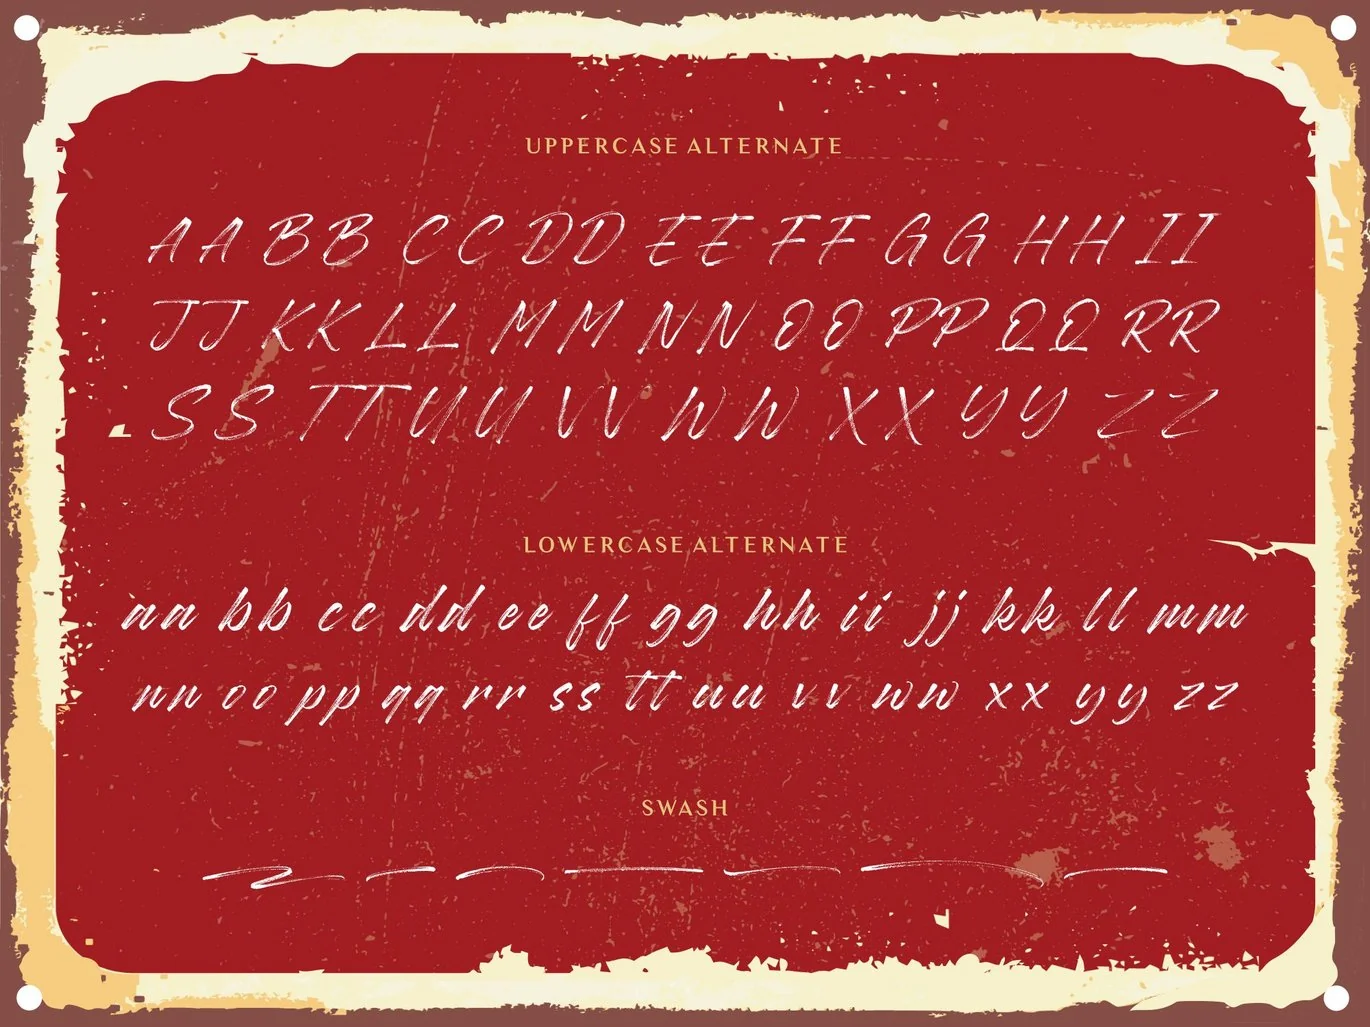 UPPERCASE ALTERNATE
AA BB CC DD EE FF GG HH II
JJ KK LL MM NN OO PP QQ RR
SS TT UU VV WW XX YY ZZ
LOWERCASE ALTERNATE
aa bb cc dd ee ff gg hh ii jj kk ll mm
nn oo pp qq rr ss tt uu vv ww xx yy zz
SWASH